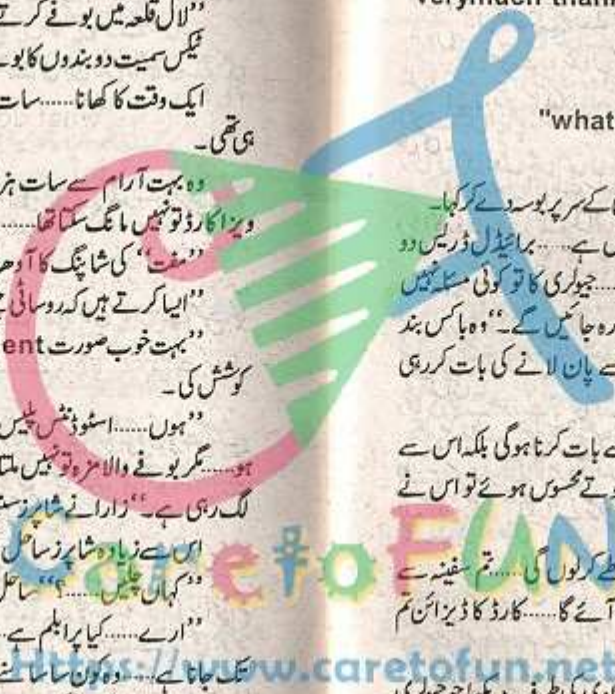 verymuch than
"what
کے سر پر بوسہ دے کر کہا۔
ہے...... برائیڈل ڈریس دو
جیولری کا تو کوئی مسئلہ نہیں
رہ جائیں گے۔“ وہ باکس بند
سے پان لانے کی بات کر رہی
بات کرنا ہوگی بلکہ اس سے
تے محسوس ہوئے تو اس نے
طے کرلوں گی...... تم سفینہ سے
آئے گا...... کارڈ کا ڈیزائن تم
”لال قلعہ میں بوفے کرتے
ٹیکس سمیت دو بندوں کا بو
ایک وقت کا کھانا...... سات
ہی تھی۔
وہ بہت آرام سے سات ہز
ویزا کارڈ تو نہیں مانگ سکتا تھا......
”مفت“ کی شاپنگ کا آدھ
”ایسا کرتے ہیں کہ روسائی
”بہت خوب صورت ent
کوشش کی۔
”ہوں...... اسٹوڈنٹس پلیس
ہو...... مگر بوفے والا مزہ تو نہیں ملتا
لگ رہی ہے۔“ زارا نے شاپرز سن
اس سے زیادہ شاپرز ساحل
”کہاں چلیں......؟“ ساحل
”ارے...... کیا پرابلم ہے
تک جانا ہے...... وہ کون سا سامنے
CaretoFUN
Https://www.caretofun.net